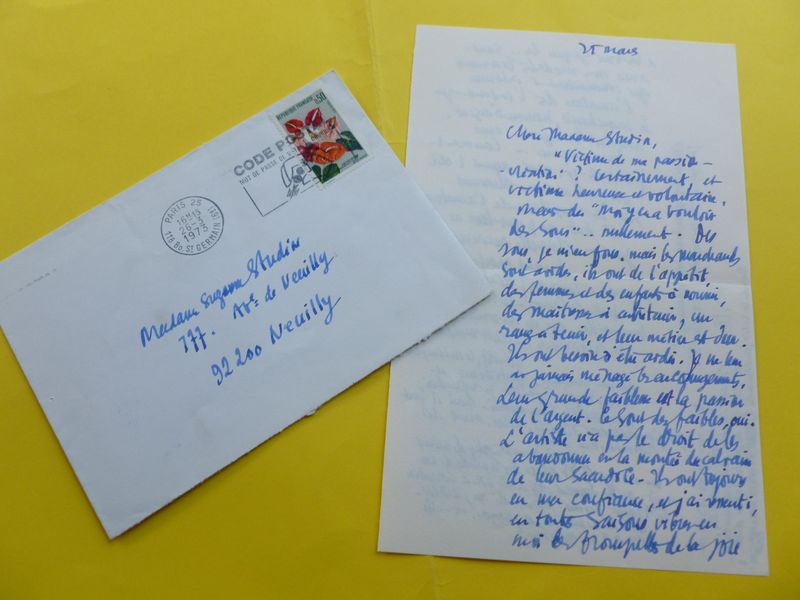 REPUBLIQUE FRANÇAISE
0,50
CODE POSTAL
MOT DE PASSE DE
PARIS 25
16H15
26-3
1973
118 BD. ST GERMAIN (6E)
Madame Suzanne Studin
177. Ave de Neuilly
92200 Neuilly
25 mars
Chère Madame Studin,
"Victime de ma passion
? certainement, et
victime heureuse et volontaire,
mais du "moyen
des sous".. nullement. Des
sous, je m'en fous, mais les marchands
sont avides, ils ont de l'appétit,
des femmes et des enfants à nourrir,
des maîtresses à entretenir, un
rang à tenir, et leur métier est dur.
Ils ont besoin d'être aidés. Je ne leur
ai jamais ménagé les encouragements,
Leur grande faiblesse est la passion
de l'argent. Ce sont des faibles, oui.
L'artiste n'a pas le droit de les
abandonner en la montée du calvaire
de leur sacerdoce. Ils ont toujours
eu ma confiance, et j'ai senti,
en toutes saisons vibrer en
moi les trompettes de la joie